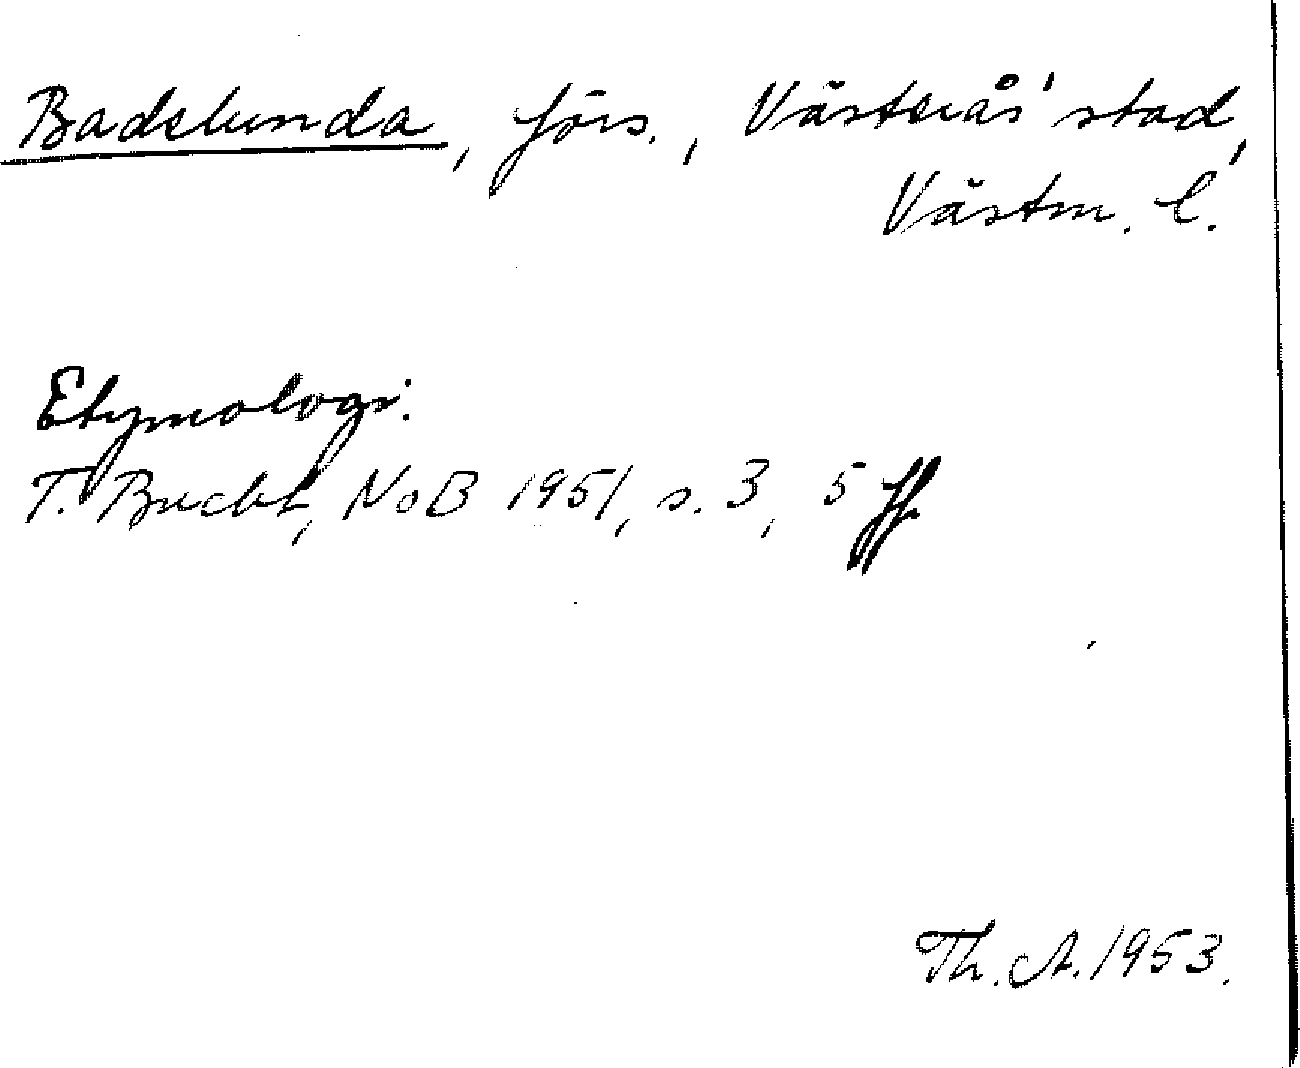 Badelunda, förs., Västerås' stad,
Västm. l.
Etymologi:
T. Bucht, NoB 1951, s. 3, 5 ff.
Th. A. 1953.